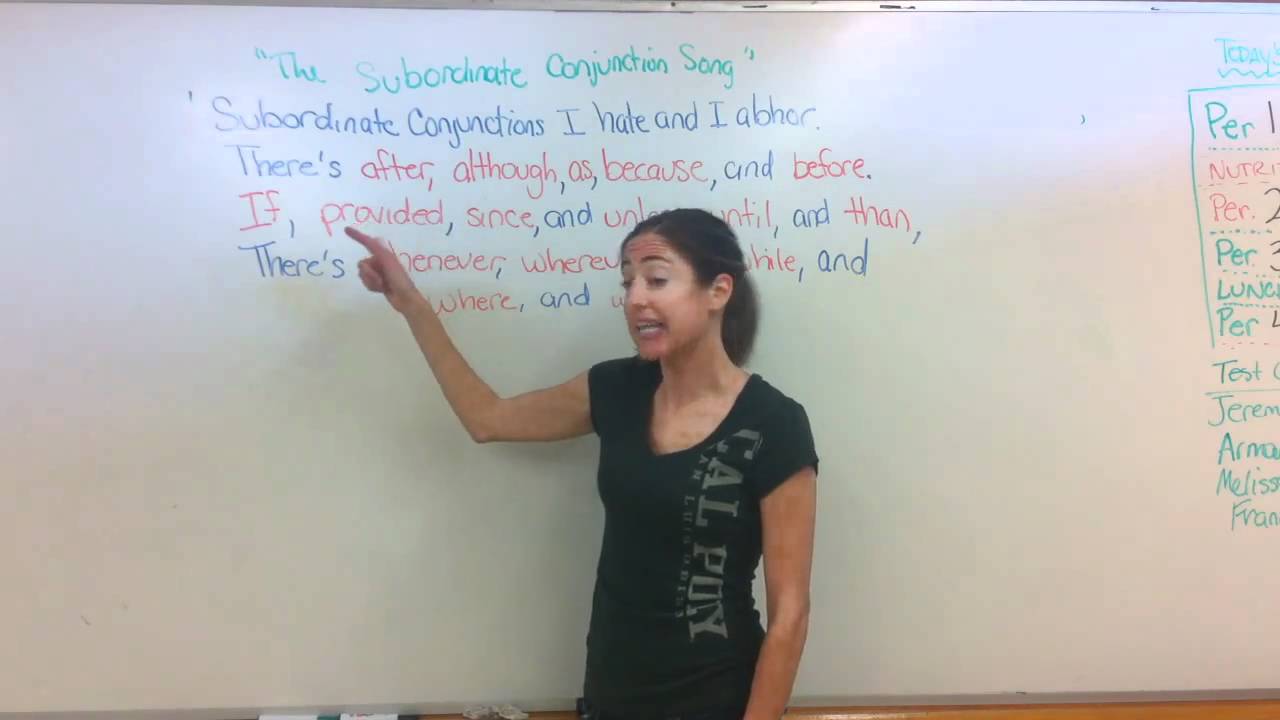 "The Subordinate Conjunction Song"
Subordinate Conjunctions I hate and I abhor.
There's after, although, as, because, and before.
If, provided, since, and until, and than,
There's whenever, and
where, and
TODAY'S
Per 1
Per. 2
Per 3
LUNCH
Per 4
Test
CAL POLY
SAN LUIS OBISPO